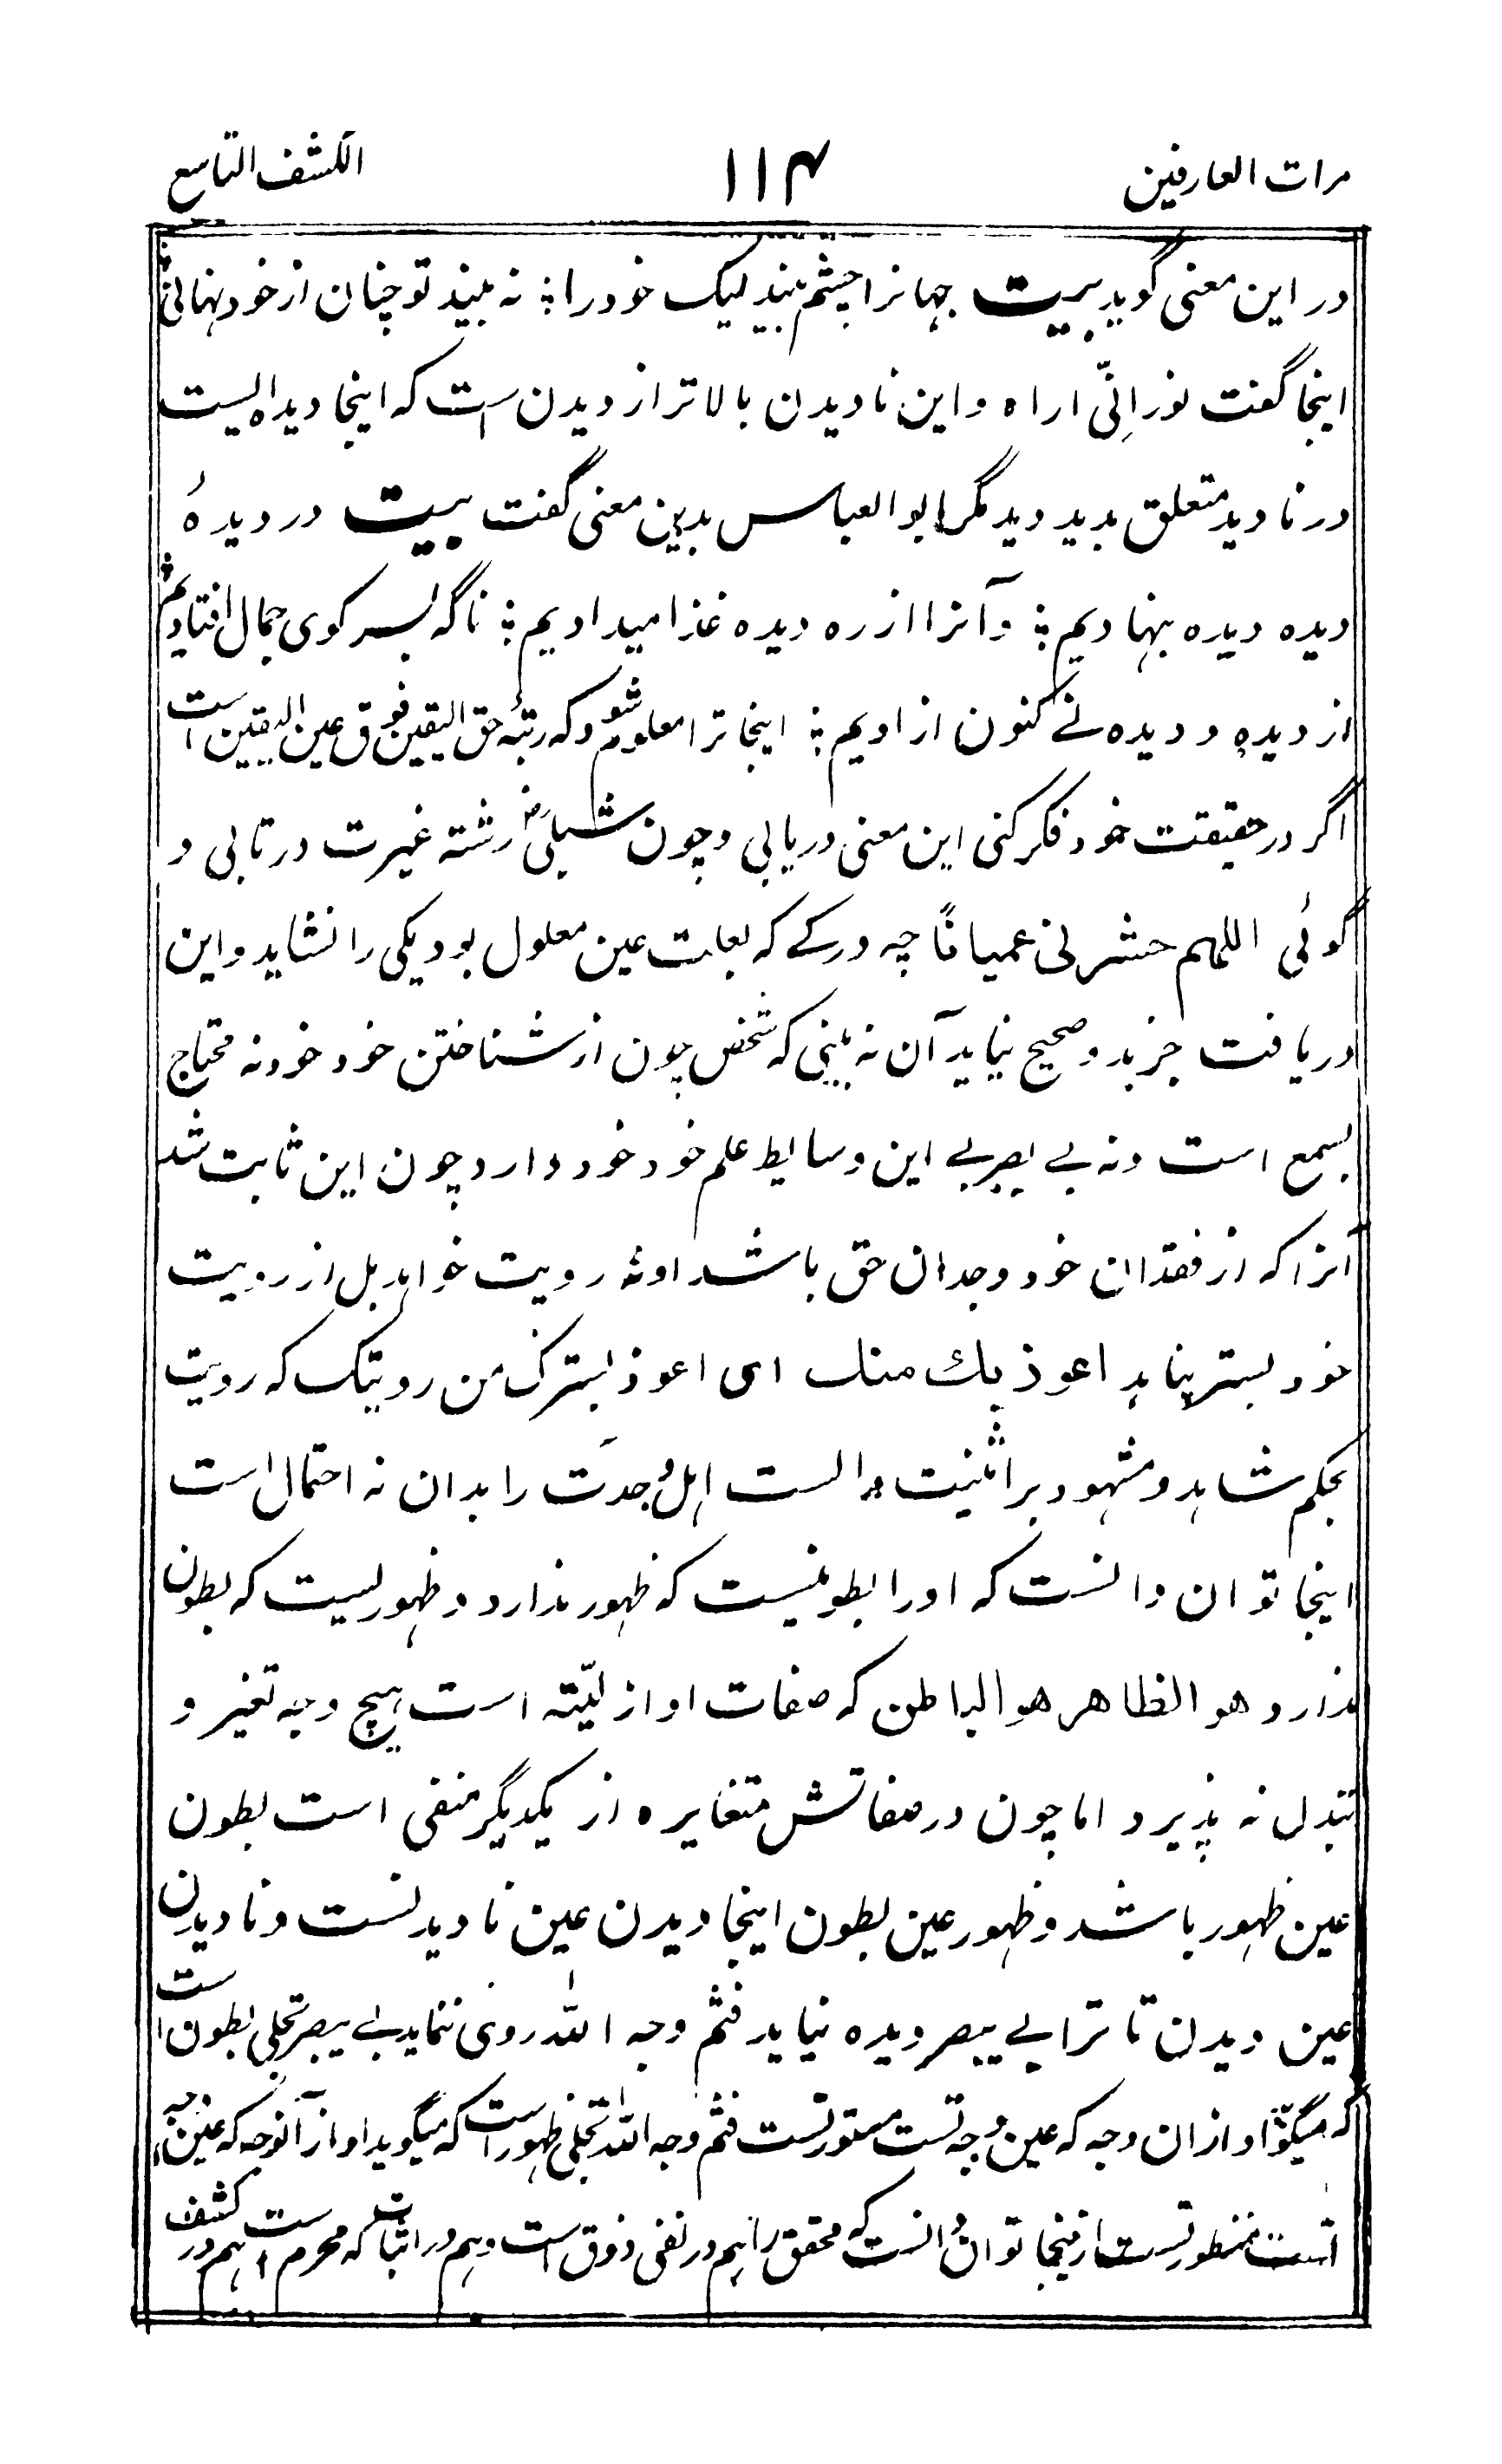 مرات العارفین ۱۱۴ الکشف التاسع
در این معنی گوید بیت جهانرا چشم بیند لیک خود را ؛ نہ بیند تو چنان از خود نہانی
اینجا گفت نور انّی اراہ و این نادیدن بالاتر از دیدن است کہ اینجا دیدہ ایست
در نادید متعلق بدید دید مگر ابو العباس بدین معنی گفت بیت در دیدۂ
دیدہ دیدہ بنہادیم ؛ و آنرا از رہ دیدہ غذا میدادیم ؛ ناگہ بسر کوی جمال افتادیم
از دیدہ و دیدہ نے کنون ازادیم ؛ اینجا ترا معلوم شود کہ رتبۂ حق الیقین فوق عین الیقین است
اگر در حقیقت خود فکر کنی این معنی دریابی و چون شبلی رض رشتہ غیرت در تابی و
گوئی اللهم حشرنی عمیاناً چہ در کے کہ بعلت عین معلول بود یکی را نشاید و این
دریافت جز بدو صحیح نیاید آن نہ بینی کہ شخص چون از شناختن خود خود نہ محتاج
بسمع است و نہ بے بصر بے این وسایط علم خود خود دارد چون این ثابت شد
آنرا کہ از فقدان خود وجدان حق باشد او نہ رویت خواہد بل از رویت
خود بستر پناہد اعوذ بك منك ای اعوذ بسترک من رویتک کہ رویت
بحکم شاہد و مشہود بر اثنیت دالست اہل وحدت را بدان نہ احتمال است
اینجا توان دانست کہ او را بطونیست کہ ظہور ندارد و ظہوریست کہ بطون
ندارد هو الظاهر هو الباطن کہ صفات او ازلیّتہ است ہیچ وجہ تغیر و
تبدل نہ پذیرد اما چون در صفاتش متغایرہ از یکدیگر منفی است بطون
عین ظہور باشد و ظہور عین بطون اینجا دیدن عین نادیدنست و نادیدن
عین دیدن تا ترا بے یبصر دیدہ نیاید فثم وجہ اللہ روی ننماید بے یبصر تجلی بطون است
کہ میگوید او ازان وجہ کہ عین وجہ تست مستور تست فثم وجہ اللہ تجلی ظہور است کہ میگوید او از آنوجہ کہ عین وجہ
تست منظور تست ازینجا توان دانست کہ محقق را ہم در نفی ذوق است و ہم در اثبات کہ محرم است ہم در کشف